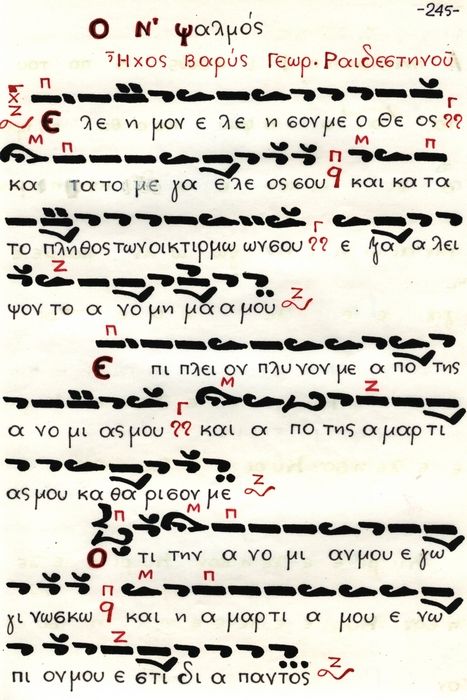 -245-
Ο Ν' ψαλμός
Ἦχος βαρύς Γεωρ. Ραιδεστηνοῦ
Π
Ε λε η μον ε λε η σον με ο Θε ος Γ
Μ Π Π Μ Π
κα τα το με γα ε λε ος σου και κα τα
το πληθος των οικτιρμω ων σου Γ ε ξα α λει
Ζ
ψον το α νο μη μα α μου Ζ
Π
Ε πι πλει ον πλυ νον με α πο της
Γ Μ Ζ
α νο μι ας μου και α πο της α μαρ τι
ας μου κα θα ρι σον με Ζ
Π Μ Π
Ο τι την α νο μι αν μου ε γω
Π Μ Π
γι νωσκω και η α μαρτι α μου ε νω
Ζ
πι ον μου ε στι δι α παντος Ζ